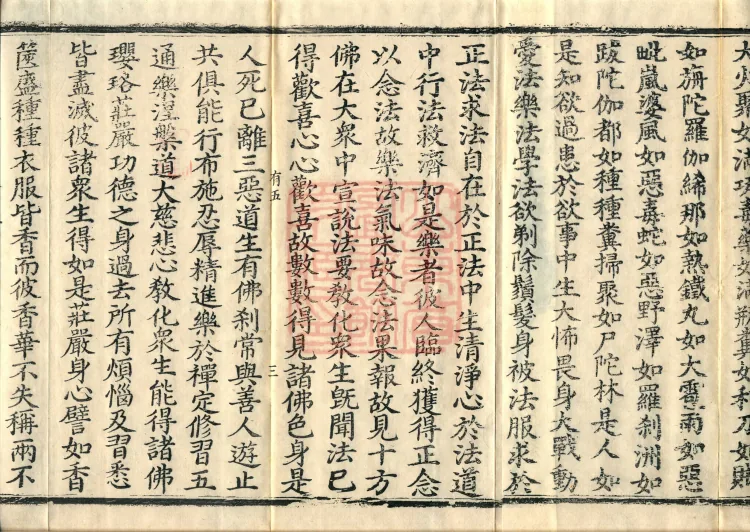 如旃陀羅伽絺那如熱鐵丸如大雹雨如惡
毗嵐婆風如惡毒蛇如惡野澤如羅刹洲如
跋陀伽都如種種糞掃聚如尸陀林是人如
是知欲過患於欲事中生大怖畏身大戰動
愛法樂法學法欲剃除鬚髮身被法服求於
正法求法自在於正法中生清淨心於法道
中行法救濟如是樂者彼人臨終獲得正念
以念法故樂法氣味故念法果報故見十方
佛在大衆中宣說法要教化衆生旣聞法已
得歡喜心心歡喜故數數得見諸佛色身是
有五
三
人死已離三惡道生有佛刹常與善人遊止
共俱能行布施忍辱精進樂於禪定修習五
通樂涅槃道大慈悲心敎化衆生能得諸佛
瓔珞莊嚴功德之身過去所有煩惱及習悉
皆盡滅彼諸衆生得如是莊嚴身心譬如香
篋盛種種衣服皆香而彼香華不失稱兩不